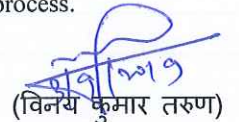 process.
(विनय कुमार तरुण)